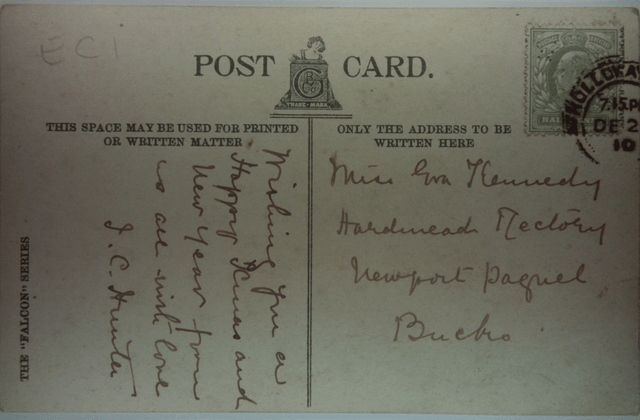 EC1
POST CARD.
TRADE MARK
THIS SPACE MAY BE USED FOR PRINTED
OR WRITTEN MATTER
ONLY THE ADDRESS TO BE
WRITTEN HERE
HOLLOWAY
7.15 P
DE 2
10
HAL
Wishing you a
Happy Xmas and
New Year from
us all with love
J. C. Hunter
Miss Eva Kennedy
Hardmead Rectory
Newport Pagnel
Bucks
THE "FALCON" SERIES